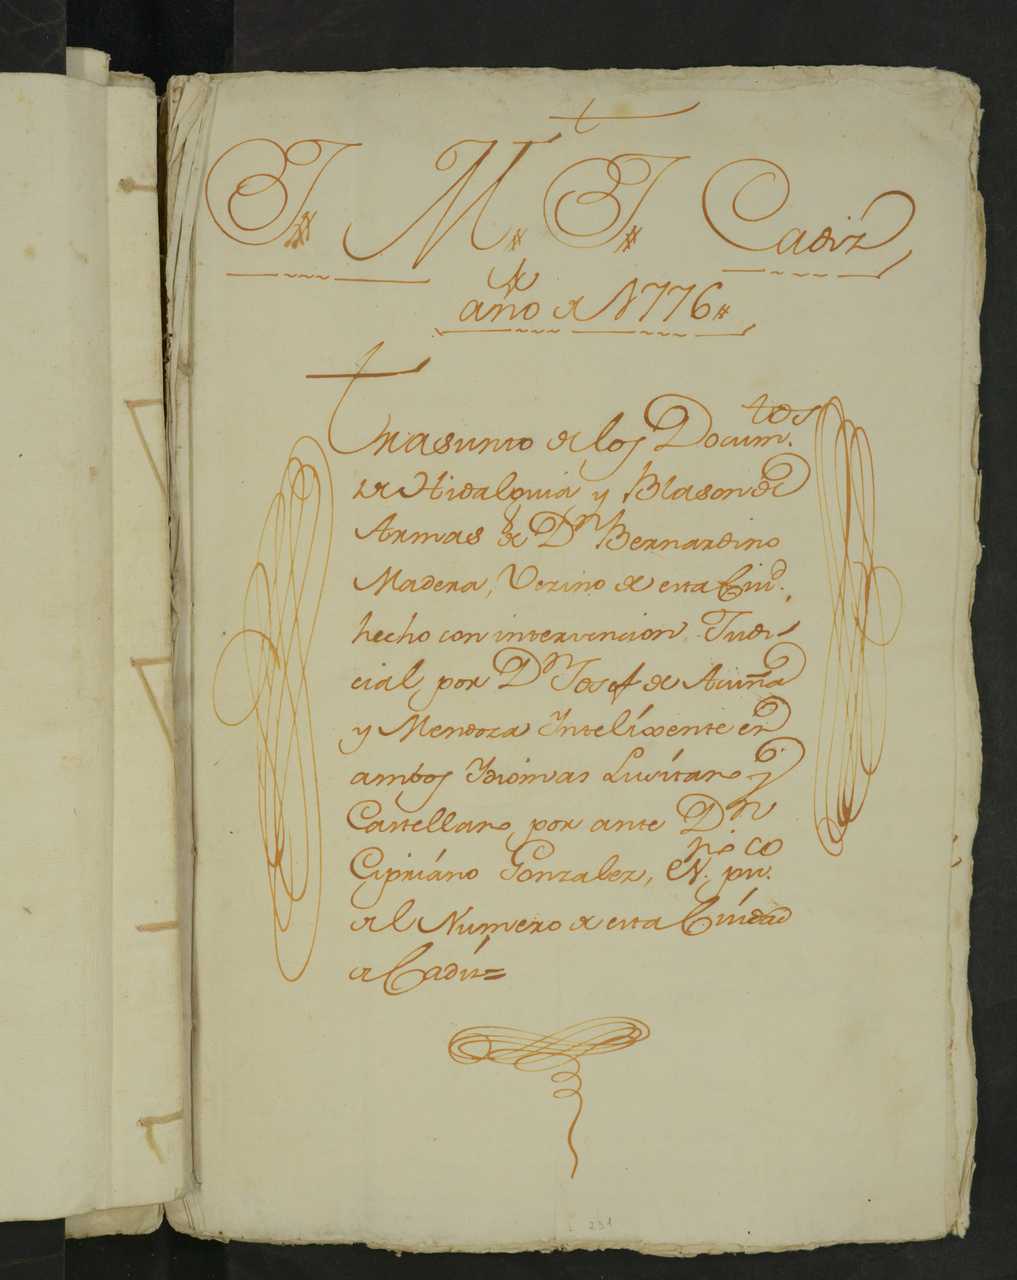 J. M. J. Cadiz
año de 1776
Trasunto de los Docum.tos
de Hidalguia y Blason de
Armas de Dn Bernardino
Madera, Vezino de esta Ciud.
hecho con intervencion Judi-
cial por Dn Josef de Acuña
y Mendoza Intelixente en
ambos Ydiomas Lusitano y
Castellano, por ante Dn
Cipriáno Gonzalez, no pu.co
del Numero de esta Ciudad
de Cadiz=
231